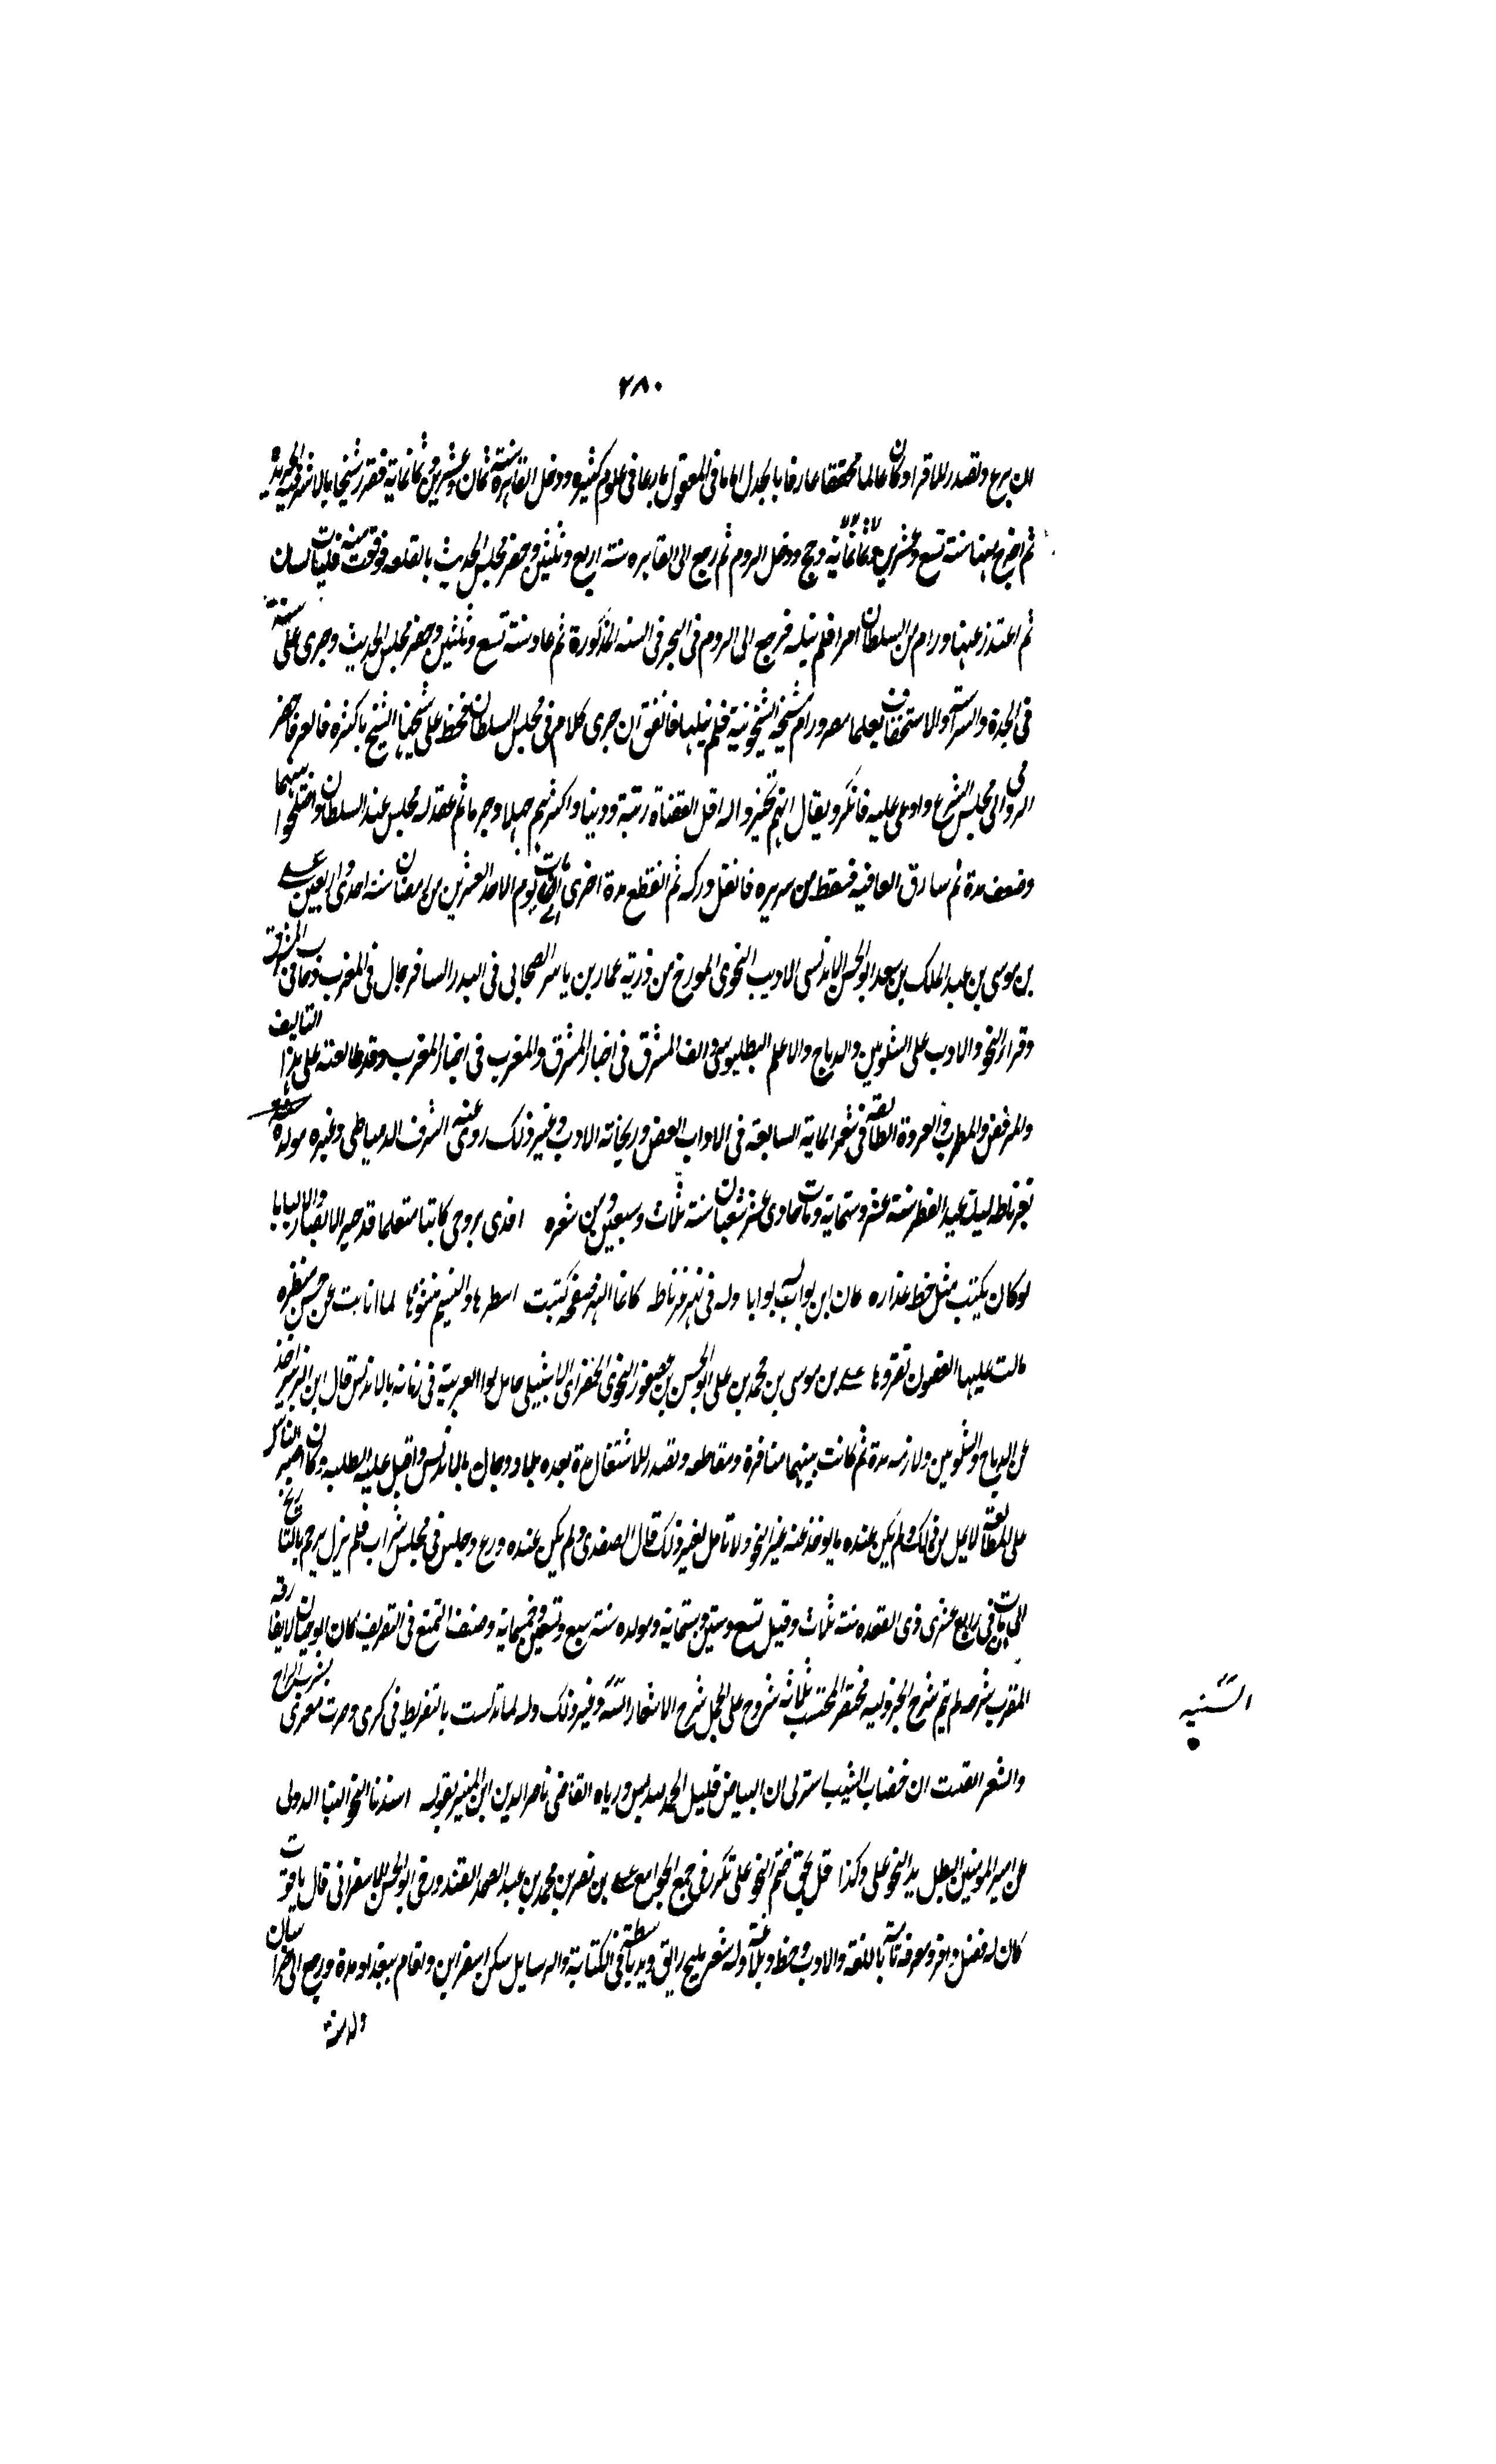 ٢٨٠
الى ان برع وتصدر للاقراء وكان عالما محققا عارفا بالجدل اماما فى المعقول بارعا فى علوم كثيرة ودخل القاهرة سنة ثمان وعشرين وثمانماية فقرر شيخا بالاشرفية الجديدة
ثم اخرج عنها سنة تسع وعشرين وثمانماية وحج ودخل الروم ثم رجع الى القاهره سنة اربع وثلثين وحضر مجلس الحديث بالقلعه فوقعت منه فلتات لسان
ثم اعتذر عنها ورام من السلطان امرا فلم ينله فرجع الى الروم فى البحر فى السنه المذكورة ثم عاد سنة تسع وثلثين وحضر مجلس الحديث وجرى على سننه
فى الحدة والشراسة والاستخفاف بعلما مصر ورام مشيخة الشيخونية فلم ينلها فاتفق ان جرى كلام فى مجلس السلطان فحط على شيخنا الشيخ باكثره فانعر فاحضر
الرومى الى مجلس الشرع وادعى عليه فانكر ويقال انهم واله اقل القضاة رتبة ودينا واكثرهم جهلا وجرما ثم عقد له مجلس عند السلطان واصلحوا بينهما
وضعف مدة ثم سارق العافيه فسقط من سريره فانفك وركه ثم انقطع مدة اخرى الى ان مات يوم الاحد العشرين من رمضان سنة احدى واربعين على
بن موسى بن عبد الملك بن سعد ابو الحسن الاندلسى الاديب النحوى المورخ من ذرية عمار بن ياسر الصحابى فى البدر السافر جال فى المغرب وصافى المشرق
وقرا النحو والادب على الشلوبين والدباج والاعلم البطليوسى والف المشرق فى اخبار المشرق والمغرب فى اخبار المغرب وقد طالعته على هذا التاليف
والمرقص والمطرب والعروة الطالعة فى شعراء الماية السابعة فى الاداب الغض وريحانة الادب وغير ذلك روى عنه الشرف الدمياطى وغيره مولده
بغرناطه ليلة عيد الفطر سنة عشر وستماية ومات حادى عشر شعبان سنة ثلاث وسبعين ومن شعره افدى بروحى كاتبا متعلما قد حير الابصار والالبابا
لو كان يكتب مثل خط عذاره كان ابن بواب له بوابا وله فى نهر غرناطه كانما النهر صفحة كتبت اسطرها والنسيم منشؤها لما ابانت عن حسن منظره
مالت عليها الغصون تقروها على بن موسى بن محمد بن على ابو الحسن بن عصفور النحوى الحضرمى الاشبيلى حامل لوا العربية فى زمانه بالاندلس قال ابن الزبير اخذ
عن الدباج والشلوبين ولازمه مدة ثم كانت بينهما منافرة ومقاطعه وتصدر للاشتغال مدة بعدة بلاد وجال بالاندلس واقبل عليه الطلبه وكان اصبر الناس
على المطالعة لا يمل من ذلك ولم يكن عنده ما يوخذ عنه غير النحو ولا تاهل لغير ذلك قال الصفدى ولم يكن عنده ورع وجلس فى مجلس شراب فلم يزل يرجم بالنارنج
الى ان مات فى رابع عشرى ذى القعده سنة ثلاث وقيل تسع وستين وستماية ومولده سنة سبع وتسعين وخمسماية وصنف الممتع فى التصريف كان ابو حيان لا يفارقه
المقرب شرحه لم يتم شرح الجزوليه مختصر المحتسب ثلاثه شروح على الجمل شرح الاشعار الستة وغير ذلك وله لما تدنست بالتفريط فى كبرى وصرت مغرى بشرب الراح
السّتّيه
والشعر ايقنت ان خضاب الشيب استر لى ان البياض قليل الحمل للدنس ورثاه القاضى ناصر الدين ابن المنير بقوله اسند النحو الينا الدولى
عن امير المومنين البطل بدا النحو على وكذا قل بحق ختم النحو على تكرر فى جمع الجوامع على بن نصر بن محمد بن عبد الصمد الفندورجى ابو الحسن الاسفراينى قال ياقوت
كان له فضل وافر ومعرفه تامة باللغة والادب وخط وبلاغة وله شعر مليح رايق ويد باسطة فى الكتابة والرسايل سكن اسفراين واقام ببغداد مدة ورجع الى خراسان
ولد سنة